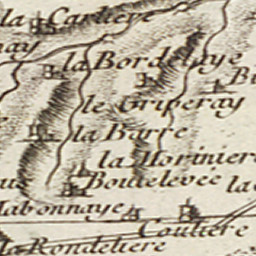 la Carliere
nay
la Bordelaye
Bu
le Griperay
la Barre
la Moriniere
Boutelevée
la
Mabonnaye
Couliere
la Rondeliere